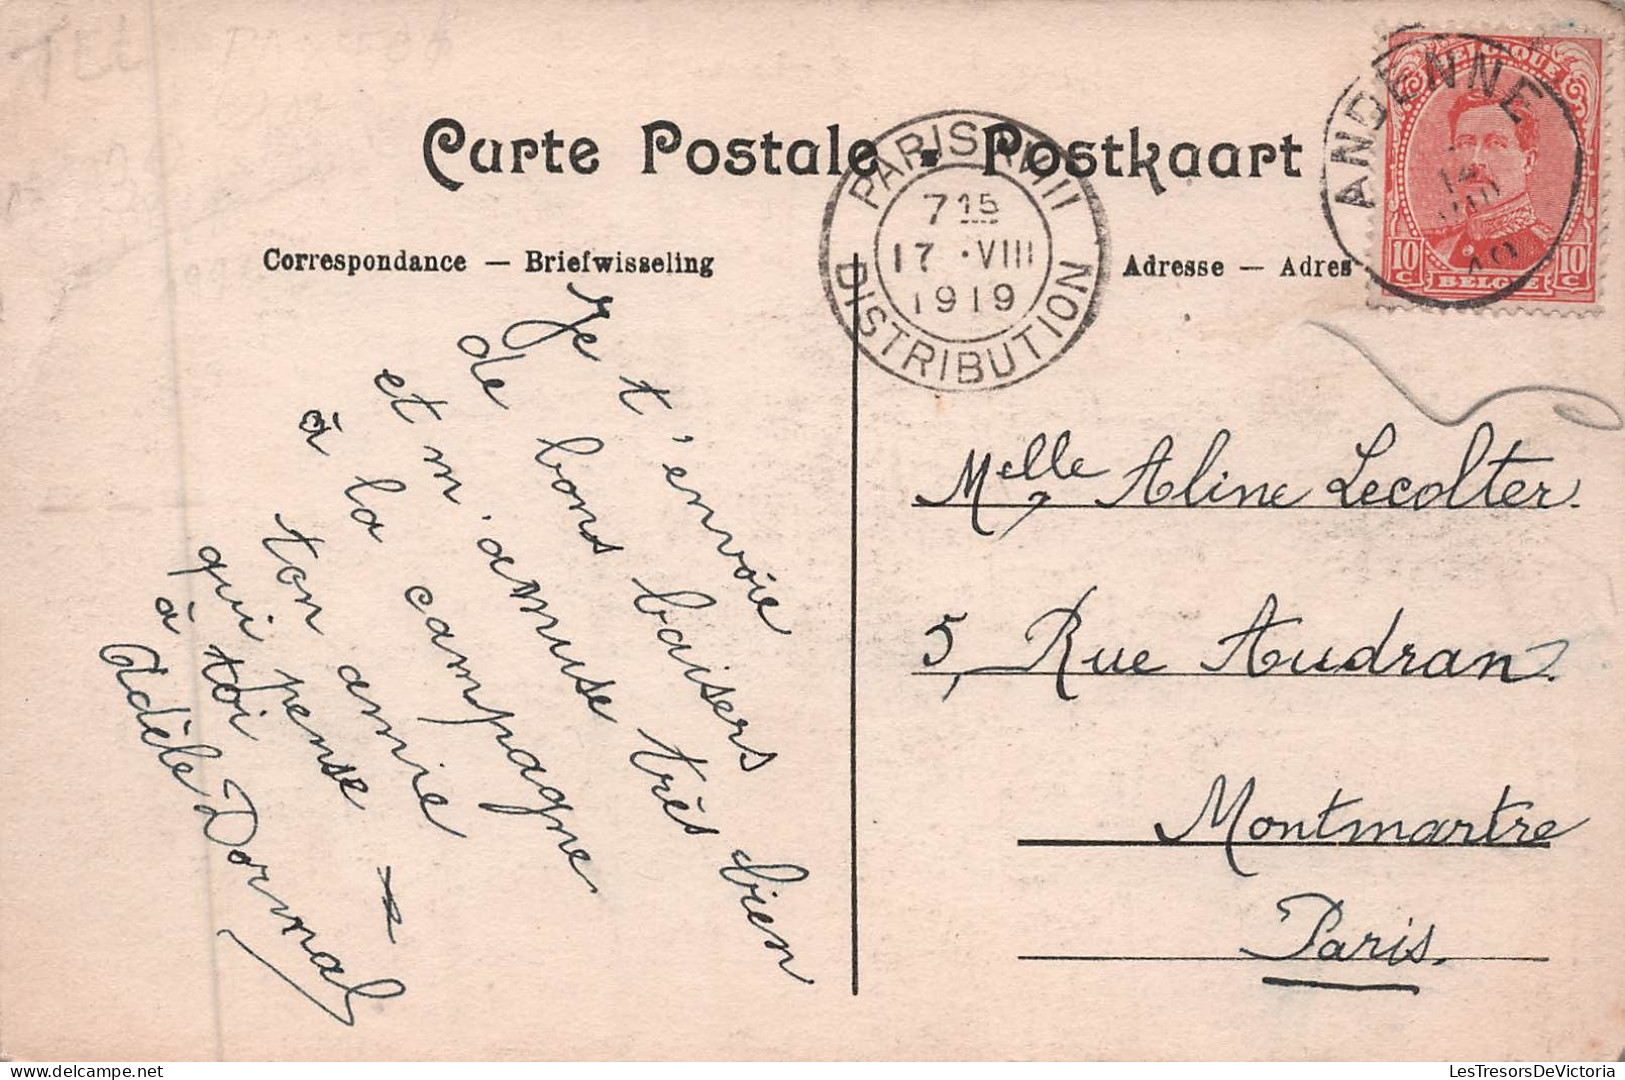 Carte Postale • Postkaart
Correspondance — Briefwisseling
Adresse — Adres
PARIS XVIII
7 15
17 · VIII
1919
DISTRIBUTION
ANDENNE
BELGIQUE
10 C
10 C
BELGIE
Je t'envoie
de bons baisers
et m'amuse très bien
à la campagne
ton amie
qui pense
à toi
Adèle Dormal
Melle Aline Lecolter.
5, Rue Audran
Montmartre
Paris.
LesTresorsDeVictoria